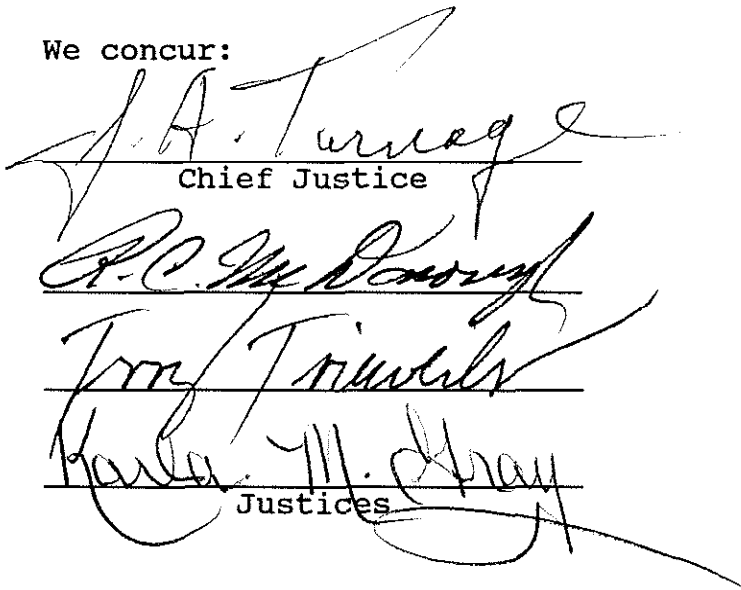 We concur:
J. A. Turnage
Chief Justice
R. C. McDonough
Terry Trieweiler
Karla M. Gray
Justices